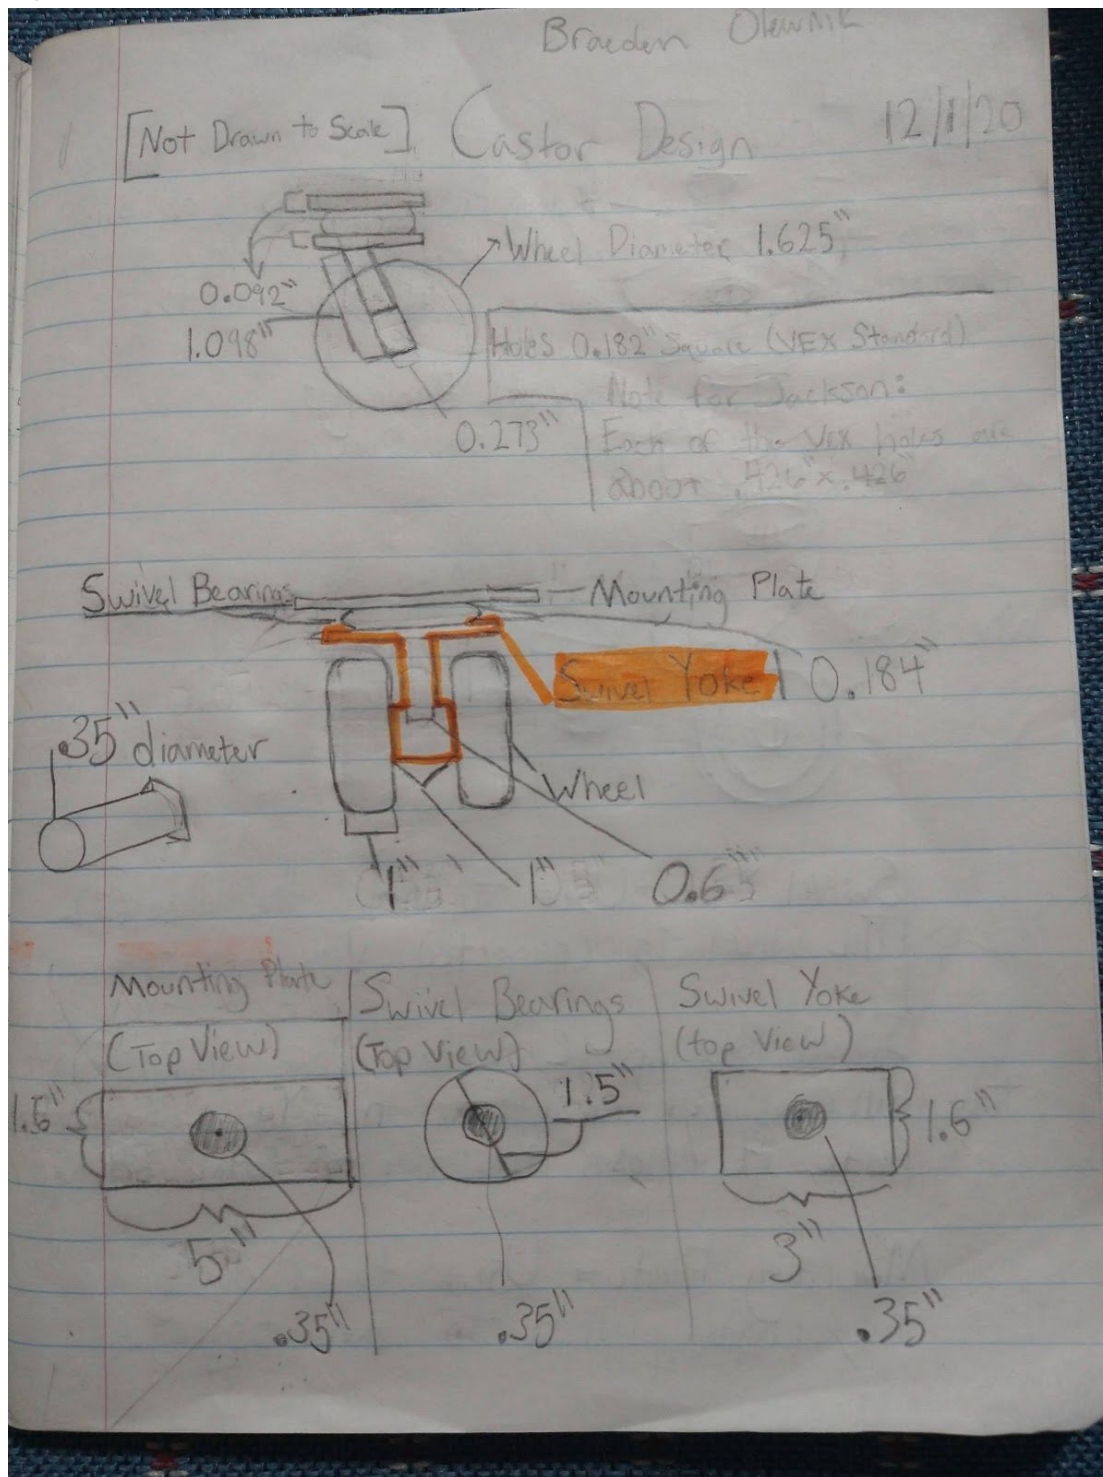 Braeden Olewnik
[Not Drawn to Scale] Castor Design 12/1/20
Wheel Diameter 1.625"
0.092"
1.098"
Holes 0.182" Square (VEX Standard)
Note for Jackson:
0.273"
Each of the VEX holes are
about .426" x .426"
Swivel Bearings
Mounting Plate
Swivel Yoke
0.184"
.35" diameter
Wheel
1" 1" 0.6"
Mounting Plate
(Top View)
Swivel Bearings
(Top View)
Swivel Yoke
(top View)
1.6"
1.5"
1.6"
5"
3"
.35" .35" .35"